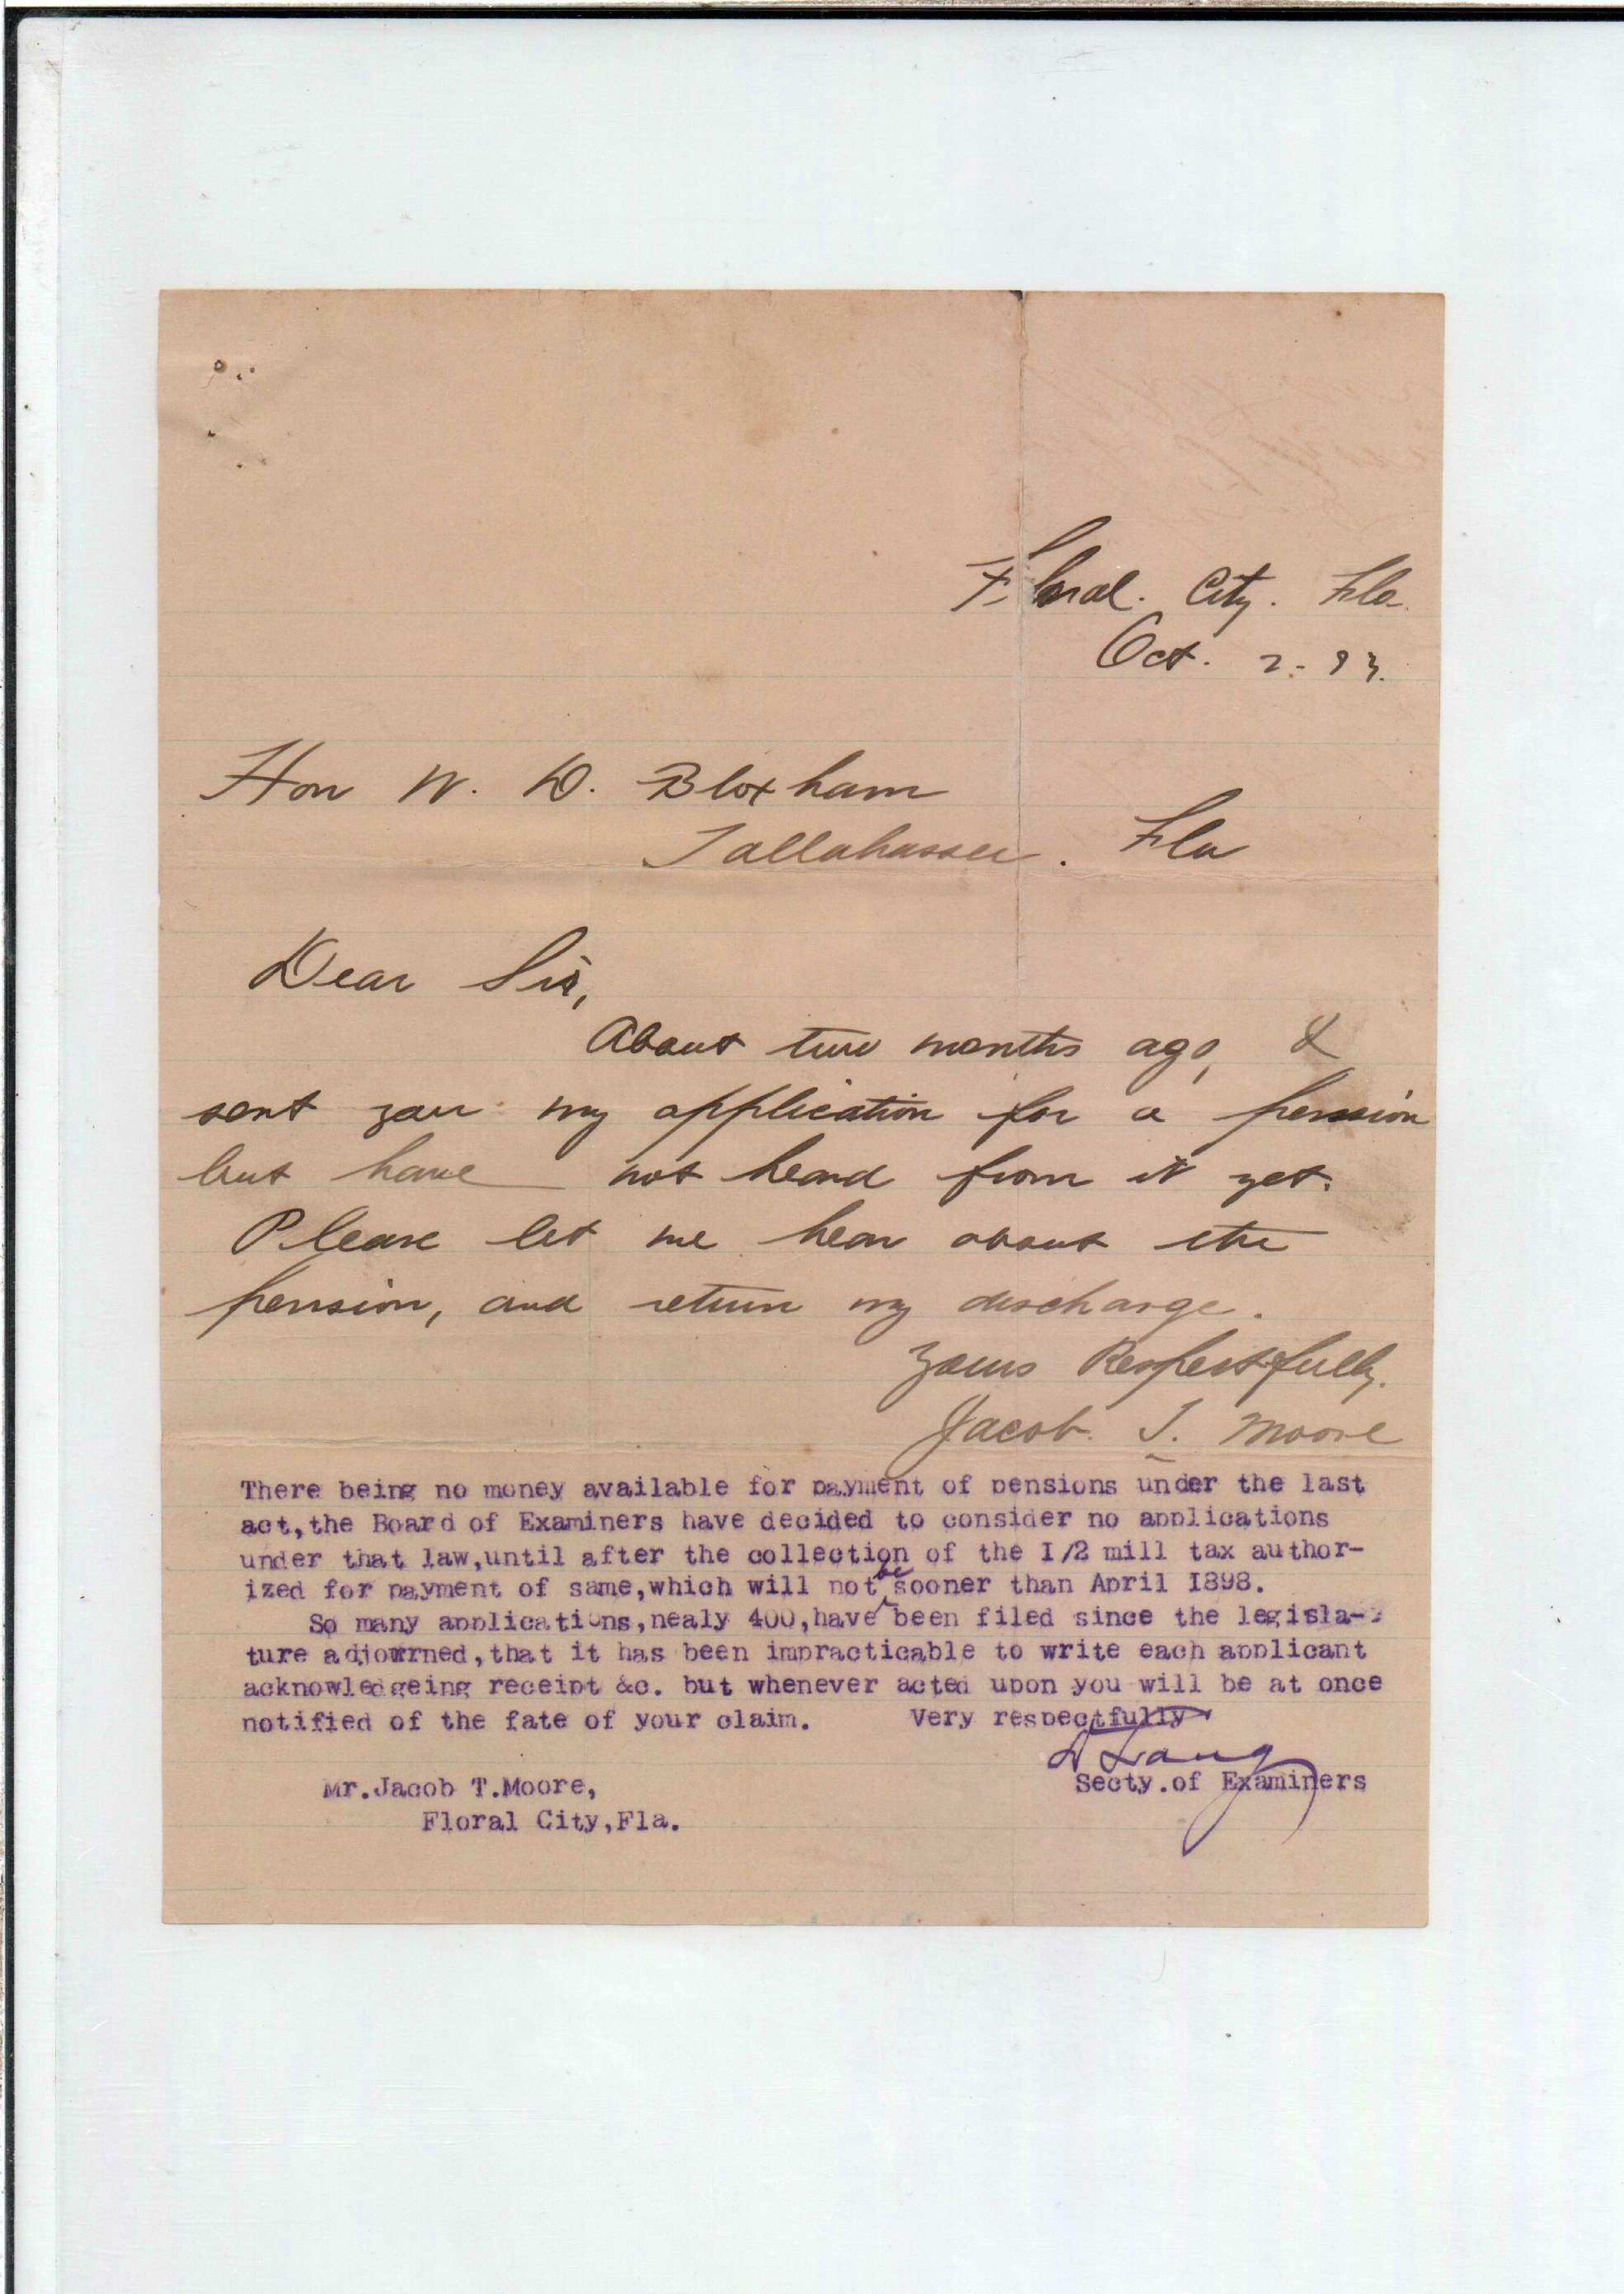 Floral. City. Fla.
Oct. 2- 97.
Hon W. D. Bloxham
Tallahassee. Fla
Dear Sir,
About two months ago, I
sent you my application for a pension
but have not heard from it yet.
Please let me hear about the
pension, and return my discharge.
Yours Respectfully.
Jacob. T. Moore
There being no money available for payment of pensions under the last
act,the Board of Examiners have decided to consider no applications
under that law,until after the collection of the I/2 mill tax author-
ized for payment of same,which will not be sooner than April I898.
So many applications,nealy 400,have been filed since the legisla-
ture adjourned,that it has been impracticable to write each applicant
acknowledgeing receipt &c. but whenever acted upon you will be at once
notified of the fate of your claim. Very respectfully
D Lang
Secty.of Examiners
Mr.Jacob T.Moore,
Floral City,Fla.